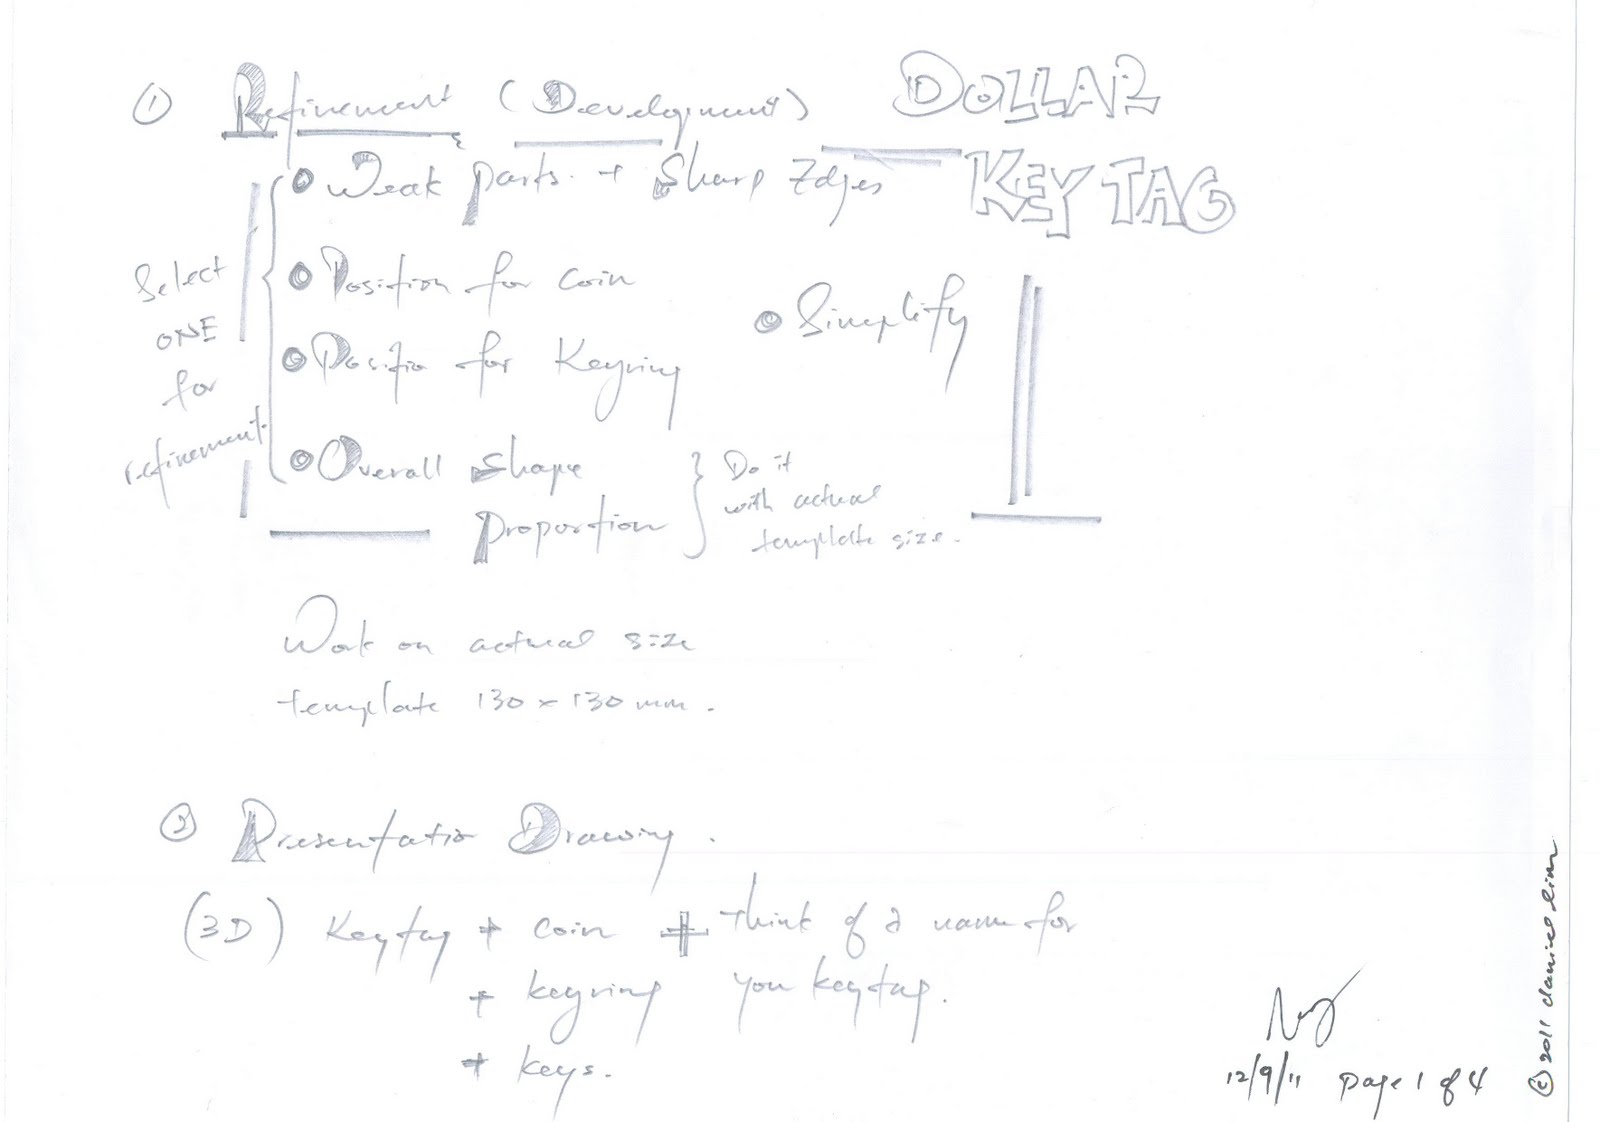 ① Refinement (Development)
DOLLAR
KEY TAG
Select
ONE
for
refinement.
Weak parts + Sharp Edges
Position for coin
Positio for Keyring
Overall Shape
proportion
Do it
with actual
template size.
Simplify
Work on actual size
template 130 x 130 mm.
② Presentatio Drawing.
(3D) Keytag + coin + Think of a name for
+ keyring you keytag.
+ keys.
12/9/11 page 1 of 4
© 2011